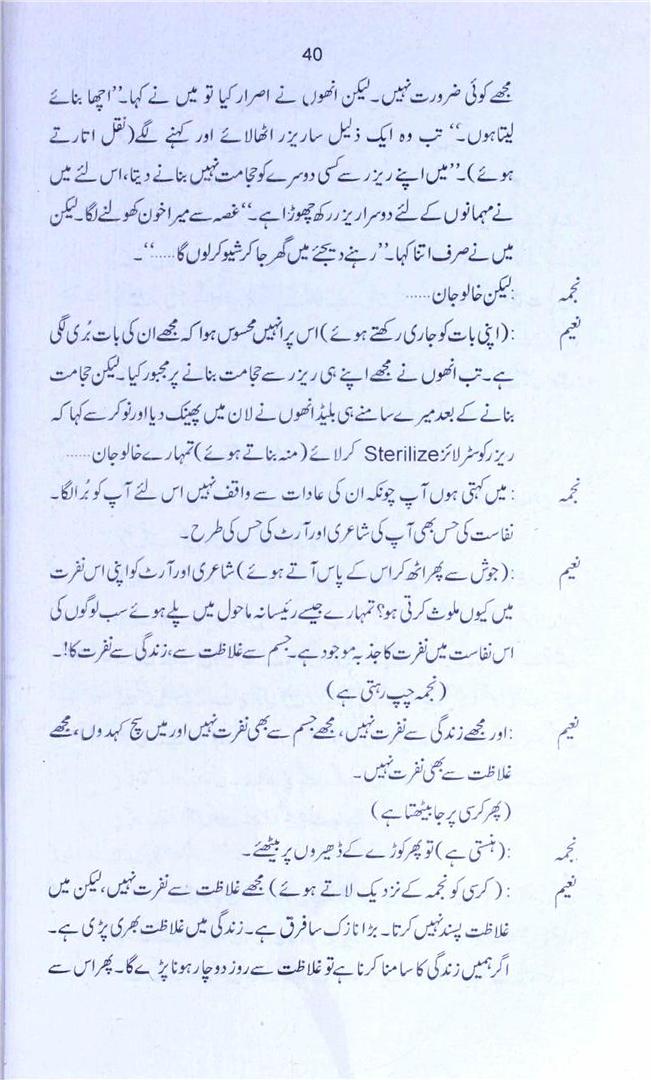 40
مجھے کوئی ضرورت نہیں۔ لیکن انھوں نے اصرار کیا تو میں نے کہا۔’’اچھا بنائے
لیتا ہوں۔‘‘ تب وہ ایک ذلیل سا ریزر اٹھا لائے اور کہنے لگے (نقل اتارتے
ہوئے)۔’’میں اپنے ریزر سے کسی دوسرے کو حجامت نہیں بنانے دیتا، اس لئے میں
نے مہمانوں کے لئے دوسرا ریزر رکھ چھوڑا ہے۔‘‘ غصہ سے میرا خون کھولنے لگا۔ لیکن
میں نے صرف اتنا کہا۔’’رہنے دیجئے میں گھر جا کر شیو کر لوں گا......‘‘۔
نجمہ : لیکن خالو جان......
نعیم : (اپنی بات کو جاری رکھتے ہوئے) اس پر انہیں محسوس ہوا کہ مجھے ان کی بات بُری لگی
ہے۔ تب انھوں نے مجھے اپنے ہی ریزر سے حجامت بنانے پر مجبور کیا۔ لیکن حجامت
بنانے کے بعد میرے سامنے ہی بلیڈ انھوں نے لان میں پھینک دیا اور نوکر سے کہا کہ
ریزر کو سٹرلائز Sterilize کر لائے (منہ بناتے ہوئے) تمہارے خالو جان......
نجمہ : میں کہتی ہوں آپ چونکہ ان کی عادات سے واقف نہیں اس لئے آپ کو بُرا لگا۔
نفاست کی حس بھی آپ کی شاعری اور آرٹ کی حس کی طرح۔
نعیم : (جوش سے پھر اٹھ کر اس کے پاس آتے ہوئے) شاعری اور آرٹ کو اپنی اس نفرت
میں کیوں ملوث کرتی ہو؟ تمہارے جیسے رئیسانہ ماحول میں پلے ہوئے سب لوگوں کی
اس نفاست میں نفرت کا جذبہ موجود ہے۔ جسم سے غلاظت سے، زندگی سے نفرت کا!۔
(نجمہ چپ رہتی ہے)
نعیم : اور مجھے زندگی سے نفرت نہیں، مجھے جسم سے بھی نفرت نہیں اور میں سچ کہدوں، مجھے
غلاظت سے بھی نفرت نہیں۔
(پھر کرسی پر جا بیٹھتا ہے)
نجمہ : (ہنستی ہے) تو پھر کوڑے کے ڈھیروں پر بیٹھئے۔
نعیم : (کرسی کو نجمہ کے نزدیک لاتے ہوئے) مجھے غلاظت سے نفرت نہیں، لیکن میں
غلاظت پسند نہیں کرتا۔ بڑا نازک سا فرق ہے۔ زندگی میں غلاظت بھری پڑی ہے۔
اگر ہمیں زندگی کا سامنا کرنا ہے تو غلاظت سے روز دو چار ہونا پڑے گا۔ پھر اس سے